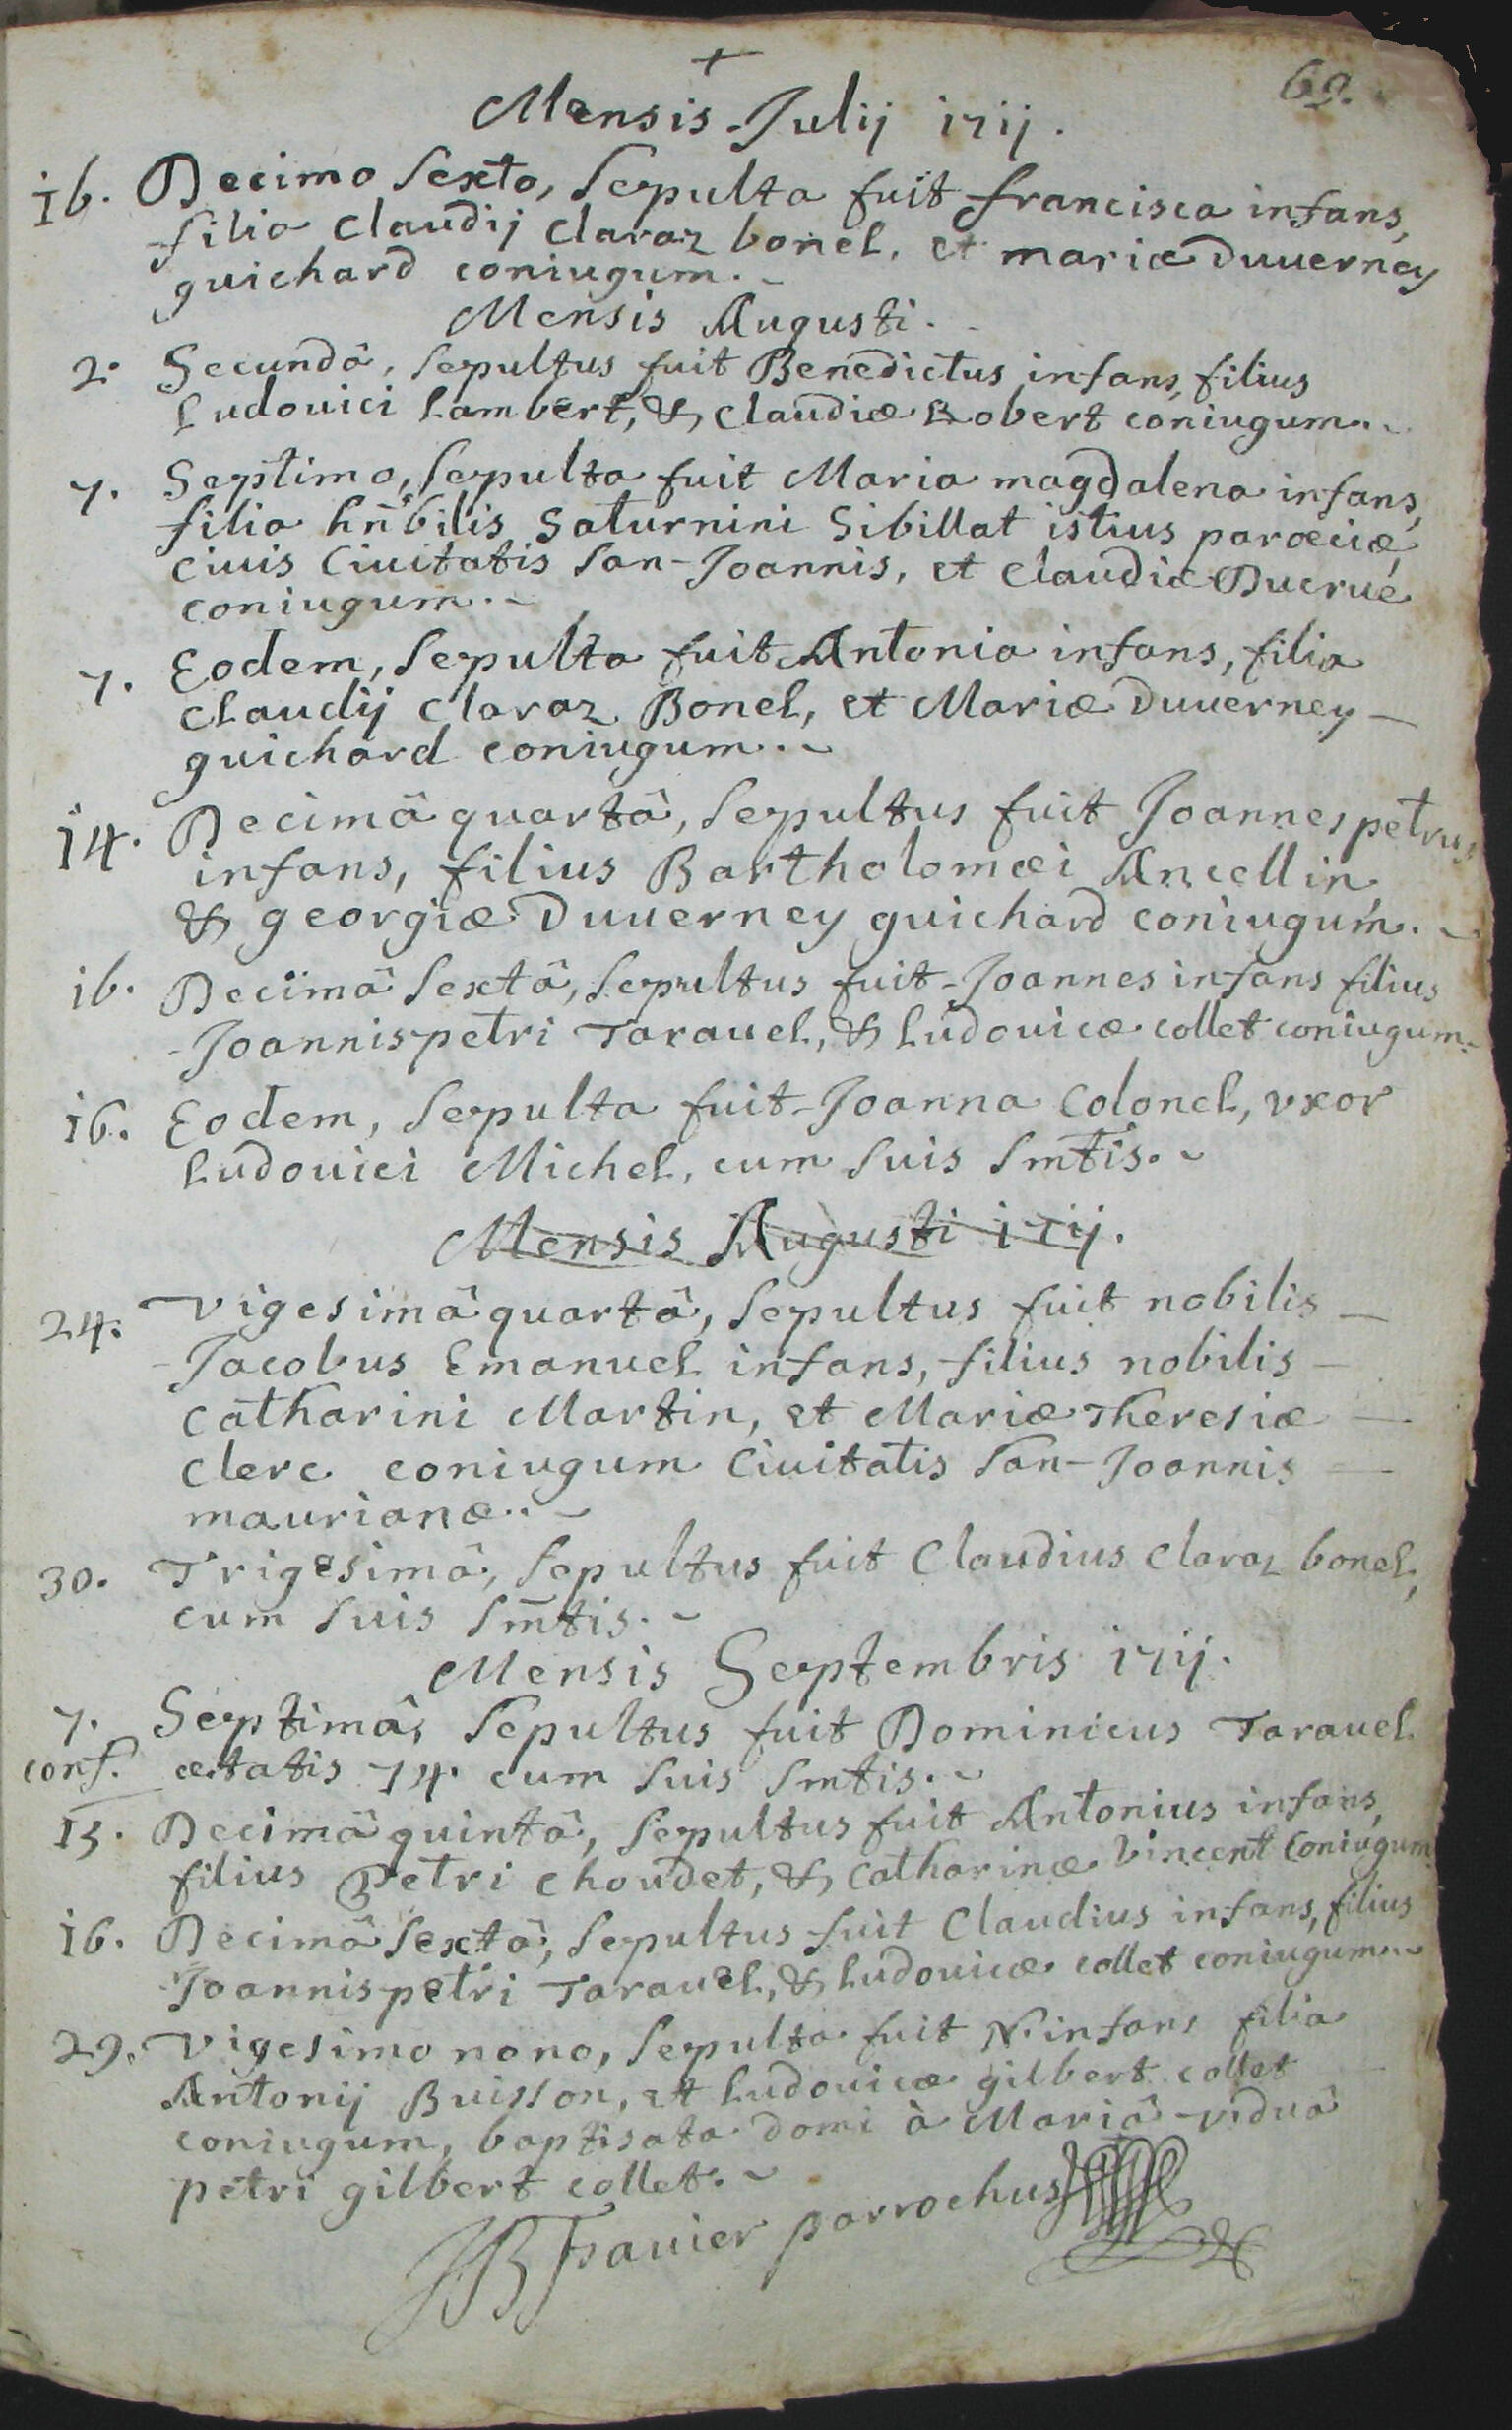 +
69.
Mensis Julij 1711.
16. Decimo sexto, sepulta fuit francisca infans,
filia Claudij Claraz bonel, et mariæ Duverney
guichard coniugum.
Mensis Augusti.
2. Secundâ, sepultus fuit Benedictus infans, filius
Ludouici Lambert, & Claudiæ Robert coniugum.
7. Septimo, sepulta fuit Maria magdalena infans,
filia hñbilis Saturnini Sibillat istius parœciæ,
ciuis Ciuitatis San-Joannis, et Claudiæ Ducrué
coniugum.
7. Eodem, sepulta fuit Antonia infans, filia
Claudij Claraz Bonel, et Mariæ Duuerney
guichard coniugum.
14. Decimâ quartâ, sepultus fuit Joannes petrus
infans, filius Bartholomæi Ancellin,
& georgiæ Duuerney guichard coniugum.
16. Decimâ sextâ, sepultus fuit Joannes infans filius
Joannis petri Tarauel, & Ludouicæ collet coniugum.
16. Eodem, sepulta fuit Joanna Colonel, vxor
Ludouici Michel, cum suis smtis.
Mensis Augusti 1711.
24. Vigesimâ quartâ, sepultus fuit nobilis
Jacobus Emanuel infans, filius nobilis
Catharini Martin, et Mariæ Theresiæ
Clerc coniugum Ciuitatis San-Joannis
maurianæ.
30. Trigesimâ, sepultus fuit Claudius Claraz bonel,
cum suis sm̃tis.
Mensis Septembris 1711.
7. Septimâ, sepultus fuit Dominicus Tarauel
conf. ætatis 74. cum suis smtis.
15. Decimâ quintâ, sepultus fuit Antonius infans,
filius Petri Choudet, & Catharinæ Vincent Coniugum
16. Decimâ sextâ, sepultus fuit Claudius infans, filius
Joannis petri Tarauel, & Ludouicæ collet coniugum.
29. Vigesimo nono, sepulta fuit N. infans filia
Antonij Buisson, et Ludouicæ gilbert collet
coniugum, baptisata domi à Mariâ viduâ
petri gilbert collet.
JB Frauier parrochus